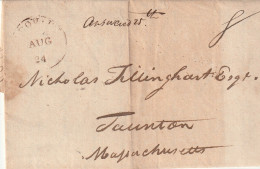 AUG
24
Answered 25th
8
Nicholas Tillinghast Esqr.
Taunton
Massachusetts